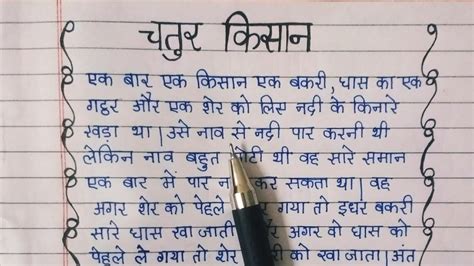 चतुर किसान
एक बार एक किसान एक बकरी, घास का एक
गट्ठर और एक शेर को लिए नदी के किनारे
खड़ा था | उसे नाव से नदी पार करनी थी
लेकिन नाव बहुत थी वह सारे समान
एक बार में पार कर सकता था | वह
अगर शेर को पेहले गया तो इधर बकरी
सारे घास खा जाती अगर वो घास को
पेहले ले गया तो शेर को खा जाता | अंत